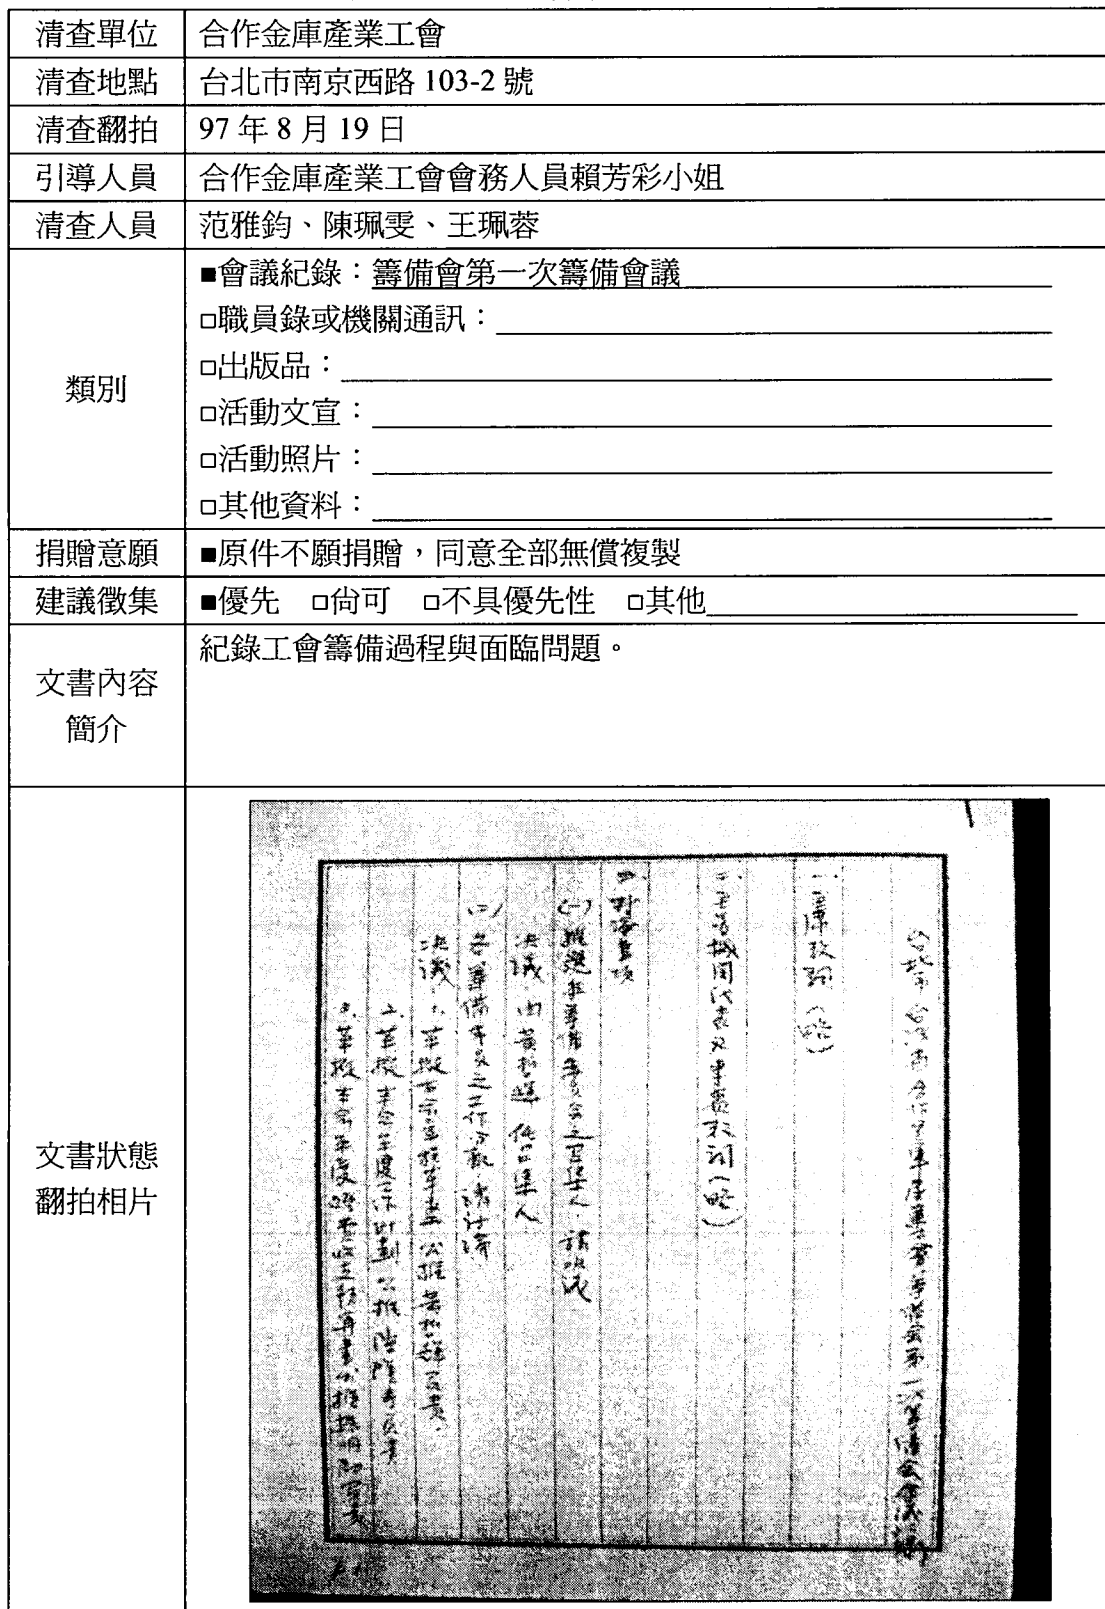 清查單位 合作金庫產業工會
清查地點 台北市南京西路 103-2 號
清查翻拍 97 年 8 月 19 日
引導人員 合作金庫產業工會會務人員賴芳彩小姐
清查人員 范雅鈞、陳珮雯、王珮蓉
類別
■會議紀錄：籌備會第一次籌備會議
□職員錄或機關通訊：
□出版品：
□活動文宣：
□活動照片：
□其他資料：
捐贈意願 ■原件不願捐贈，同意全部無償複製
建議徵集 ■優先 □尚可 □不具優先性 □其他
文書內容
簡介
紀錄工會籌備過程與面臨問題。
文書狀態
翻拍相片
一、主席致詞（略）
二、主管機關代表及來賓致詞（略）
三、討論事項
(一) 推選本籌備委員會之召集人 請公決
決議 由黃 任召集人
(二) 各籌備委員之工作分配 請討論
決議